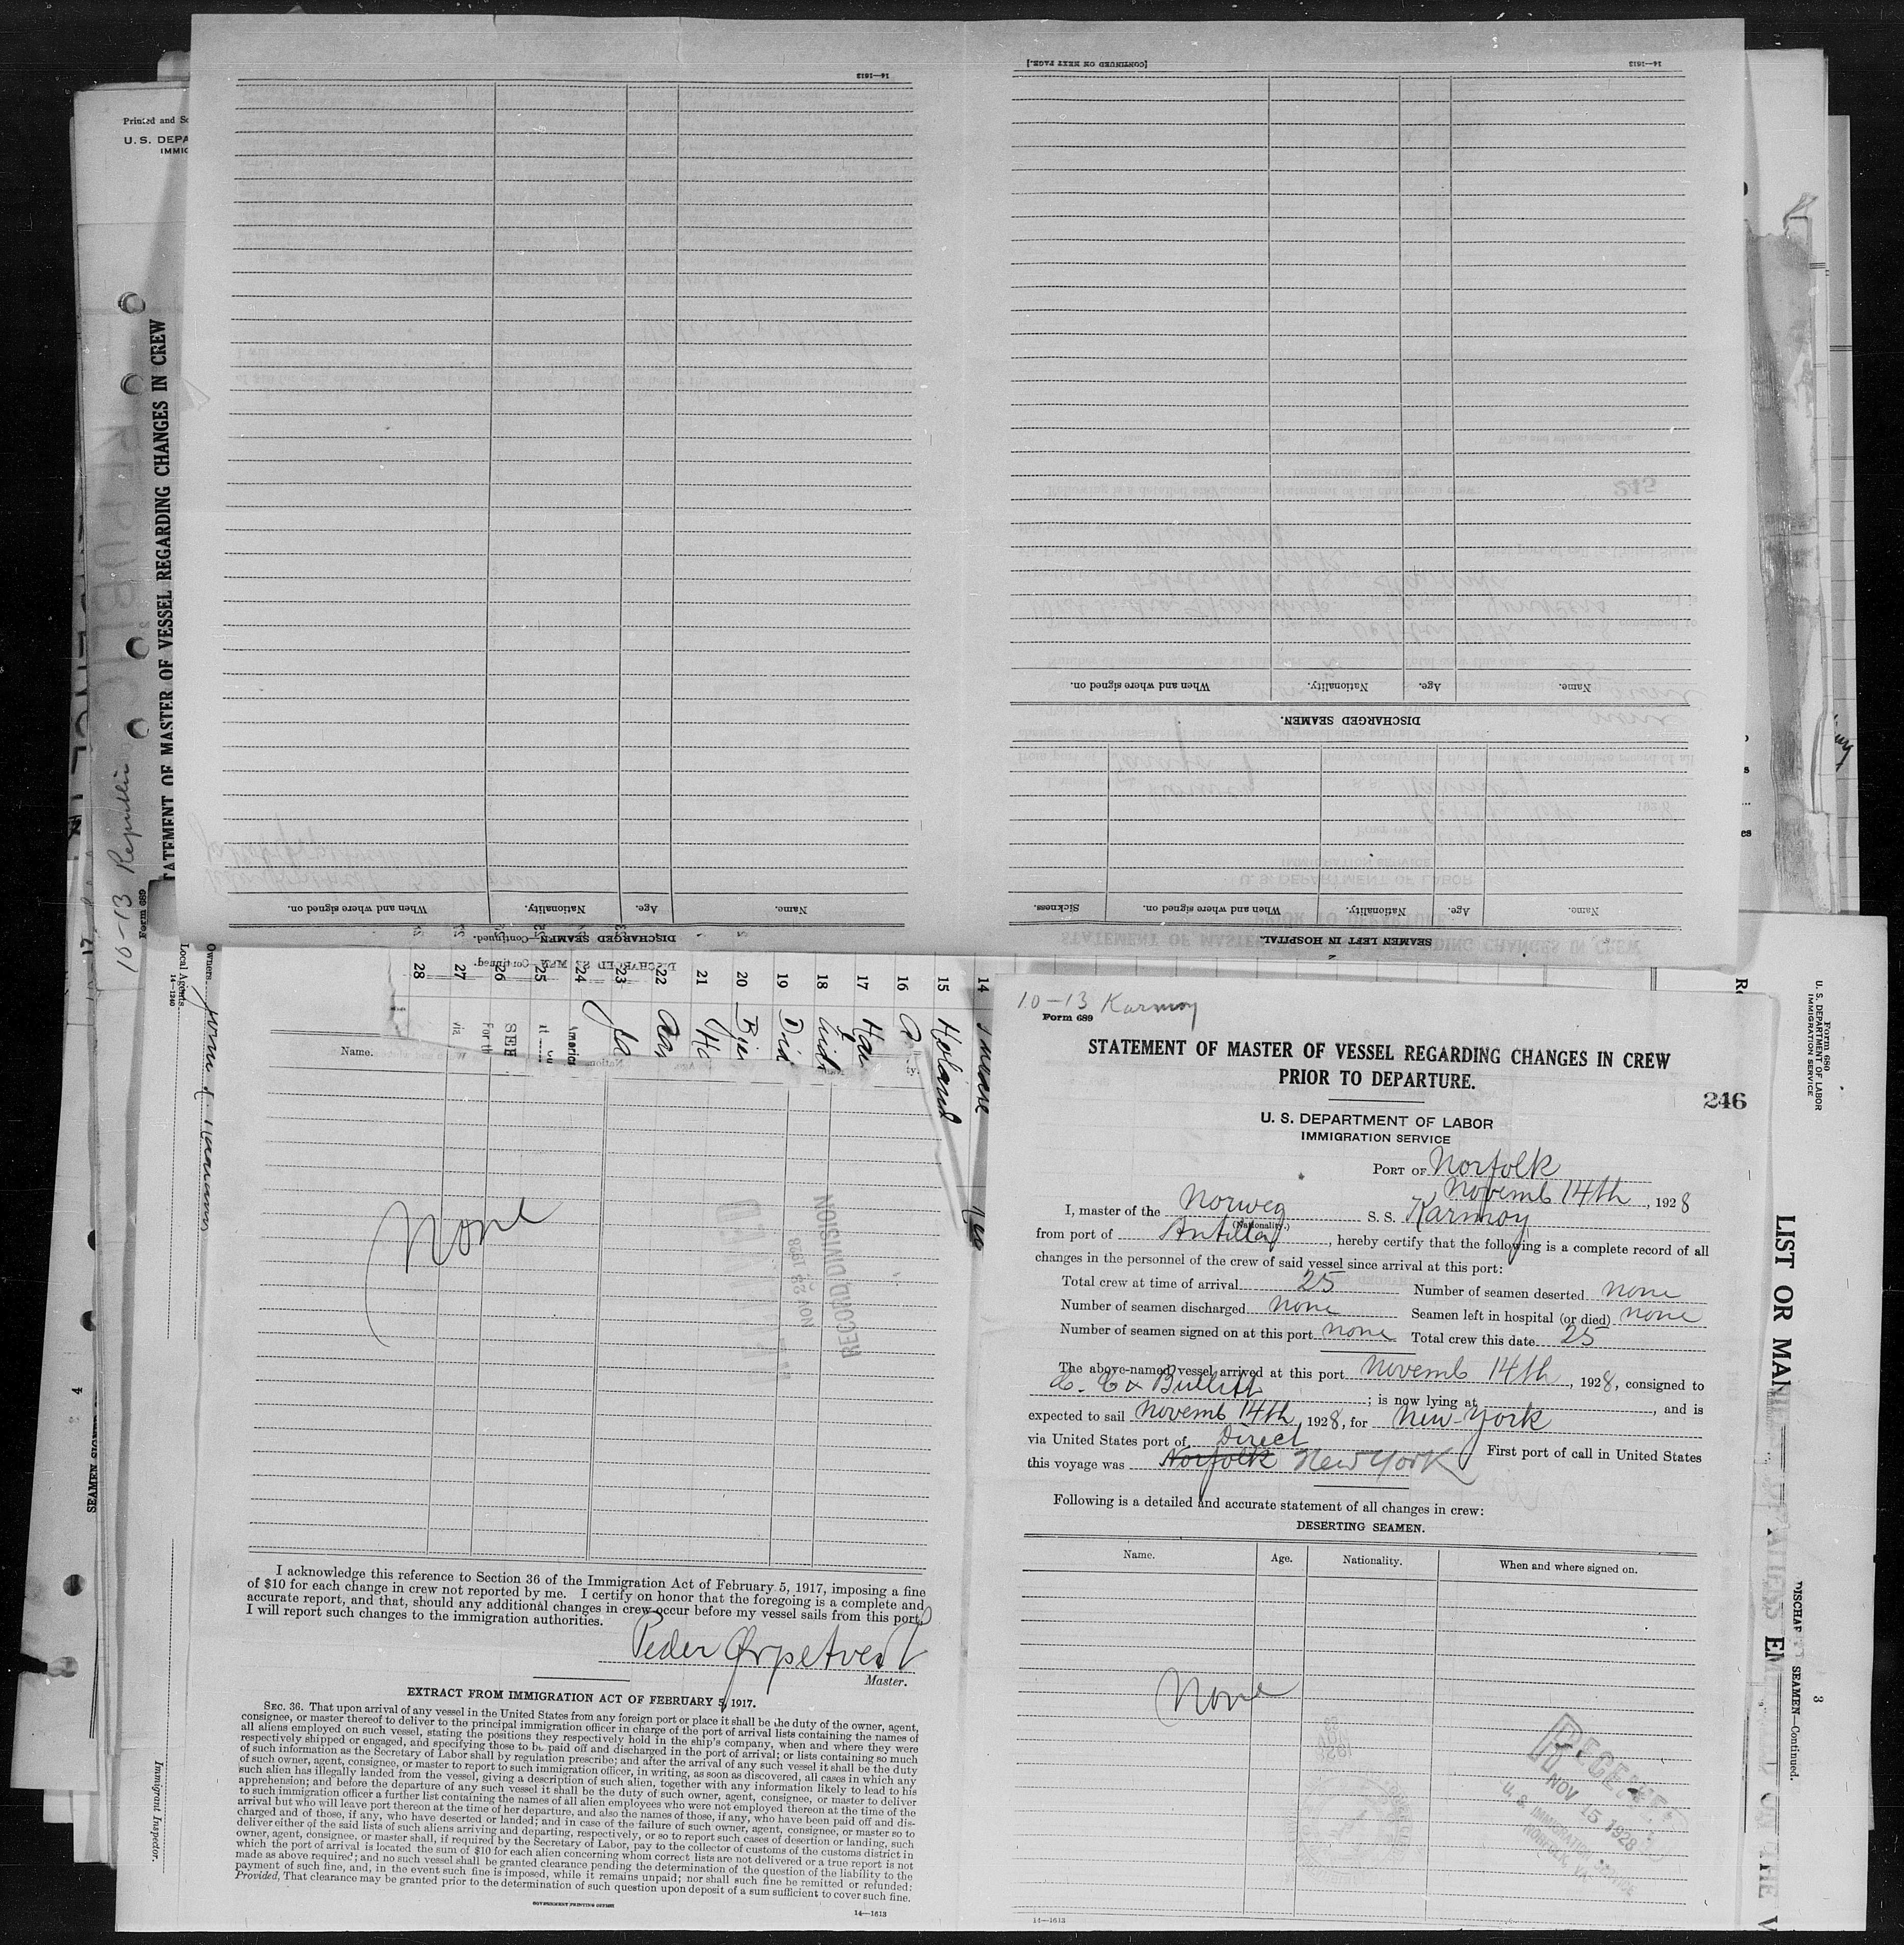 14—1613
[CONTINUED ON NEXT PAGE.]
14—1613
Name.
Age.
Nationality.
When and where signed on.
DISCHARGED SEAMEN.
Name.
Age.
Nationality.
When and where signed on.
Sickness.
SEAMEN LEFT IN HOSPITAL.
Name.
Age.
Nationality.
When and where signed on.
DISCHARGED SEAMEN—Continued.
Printed and
U. S. DEPA
IMMIG
STATEMENT OF MASTER OF VESSEL REGARDING CHANGES IN CREW
10-13 Republic
Form 689
Owners
Local Agents
14—1240
Immigrant Inspector.
4
14
15 Holand
16
17
18
19
20
21
22
23
24
25
26
27
28
Name.
None
RECORD DIVISION
NOV 23 1928
I acknowledge this reference to Section 36 of the Immigration Act of February 5, 1917, imposing a fine
of $10 for each change in crew not reported by me. I certify on honor that the foregoing is a complete and
accurate report, and that, should any additional changes in crew occur before my vessel sails from this port,
I will report such changes to the immigration authorities.
Peder
Master.
EXTRACT FROM IMMIGRATION ACT OF FEBRUARY 5, 1917.
SEC. 36. That upon arrival of any vessel in the United States from any foreign port or place it shall be the duty of the owner, agent,
consignee, or master thereof to deliver to the principal immigration officer in charge of the port of arrival lists containing the names of
all aliens employed on such vessel, stating the positions they respectively hold in the ship's company, when and where they were
respectively shipped or engaged, and specifying those to be paid off and discharged in the port of arrival; or lists containing so much
of such information as the Secretary of Labor shall by regulation prescribe; and after the arrival of any such vessel it shall be the duty
of such owner, agent, consignee, or master to report to such immigration officer, in writing, as soon as discovered, all cases in which any
such alien has illegally landed from the vessel, giving a description of such alien, together with any information likely to lead to his
apprehension; and before the departure of any such vessel it shall be the duty of such owner, agent, consignee, or master to deliver
to such immigration officer a further list containing the names of all alien employees who were not employed thereon at the time of the
arrival but who will leave port thereon at the time of her departure, and also the names of those, if any, who have been paid off and dis-
charged and of those, if any, who have deserted or landed; and in case of the failure of such owner, agent, consignee, or master so to
deliver either of the said lists of such aliens arriving and departing, respectively, or so to report such cases of desertion or landing, such
owner, agent, consignee, or master shall, if required by the Secretary of Labor, pay to the collector of customs of the customs district in
which the port of arrival is located the sum of $10 for each alien concerning whom correct lists are not delivered or a true report is not
made as above required; and no such vessel shall be granted clearance pending the determination of the question of the liability to the
payment of such fine, and, in the event such fine is imposed, while it remains unpaid; nor shall such fine be remitted or refunded:
Provided, That clearance may be granted prior to the determination of such question upon deposit of a sum sufficient to cover such fine.
GOVERNMENT PRINTING OFFICE
14—1613
10-13 Karmoy
Form 689
STATEMENT OF MASTER OF VESSEL REGARDING CHANGES IN CREW
PRIOR TO DEPARTURE.
246
U. S. DEPARTMENT OF LABOR
IMMIGRATION SERVICE
PORT OF Norfolk
Novemb 14th, 1928
I, master of the Norweg S. S. Karmoy
(Nationality.)
from port of Antilla, hereby certify that the following is a complete record of all
changes in the personnel of the crew of said vessel since arrival at this port:
Total crew at time of arrival 25 Number of seamen deserted none
Number of seamen discharged none Seamen left in hospital (or died) none
Number of seamen signed on at this port none Total crew this date 25
The above-named vessel arrived at this port Novemb 14th, 1928, consigned to
; is now lying at , and is
expected to sail Novemb 14th, 1928, for New-York
via United States port of Direct First port of call in United States
this voyage was Norfolk New York
Following is a detailed and accurate statement of all changes in crew:
DESERTING SEAMEN.
Name. Age. Nationality. When and where signed on.
None
RECEIVED
NOV 15 1928
U. S. IMMIGRATION SERVICE
NORFOLK, VA.
14—1613
Form 680
U. S. DEPARTMENT OF LABOR
IMMIGRATION SERVICE
LIST OR MAN
3
SEAMEN—Continued.